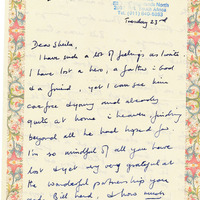 Tuesday 23rd
Dear Sheila,
I have such a lot of feelings, as I write
I have lost a hero, a father in God
& a friend, yet I can see him
carefree & young and already
quite at home in heaven finding
beyond all he had hoped for
I'm so mindful of all you have
lost & yet very very grateful at
the wonderful partnership you
and Bill had, & how much